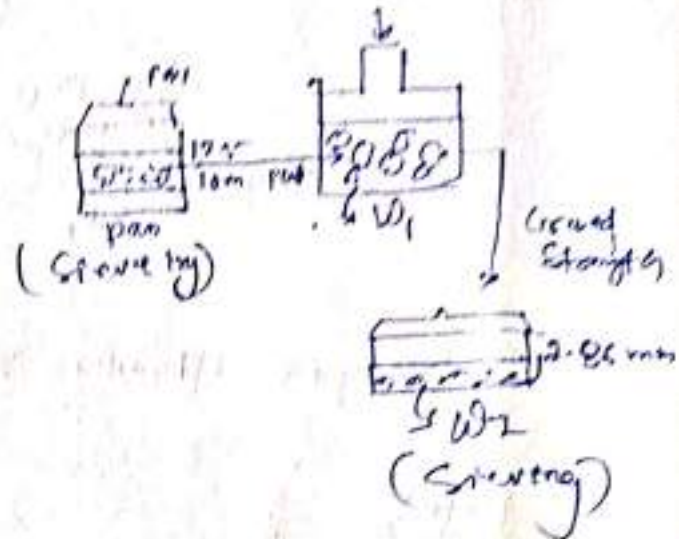 pan
12 m
10 m
put
pan
(Sieveing)
W1
crushed
Strength
2.86 mm
W2
(Sieveing)